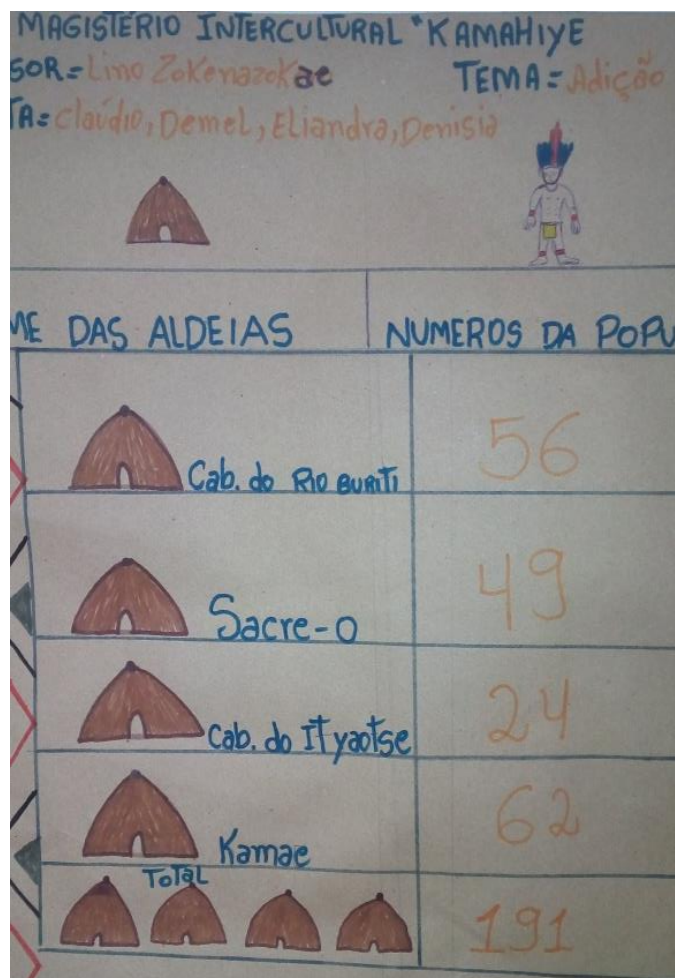 MAGISTÉRIO INTERCULTURAL "KAMAHIYE
SOR= Lino Zokenazokae TEMA= Adição
TA= Claúdio, Demel, Eliandra, Denisia
ME DAS ALDEIAS NUMEROS DA POPU
Cab. do RIO BURITI 56
Sacre-o 49
Cab. do Ityaotse 24
Kamae 62
TOTAL 191